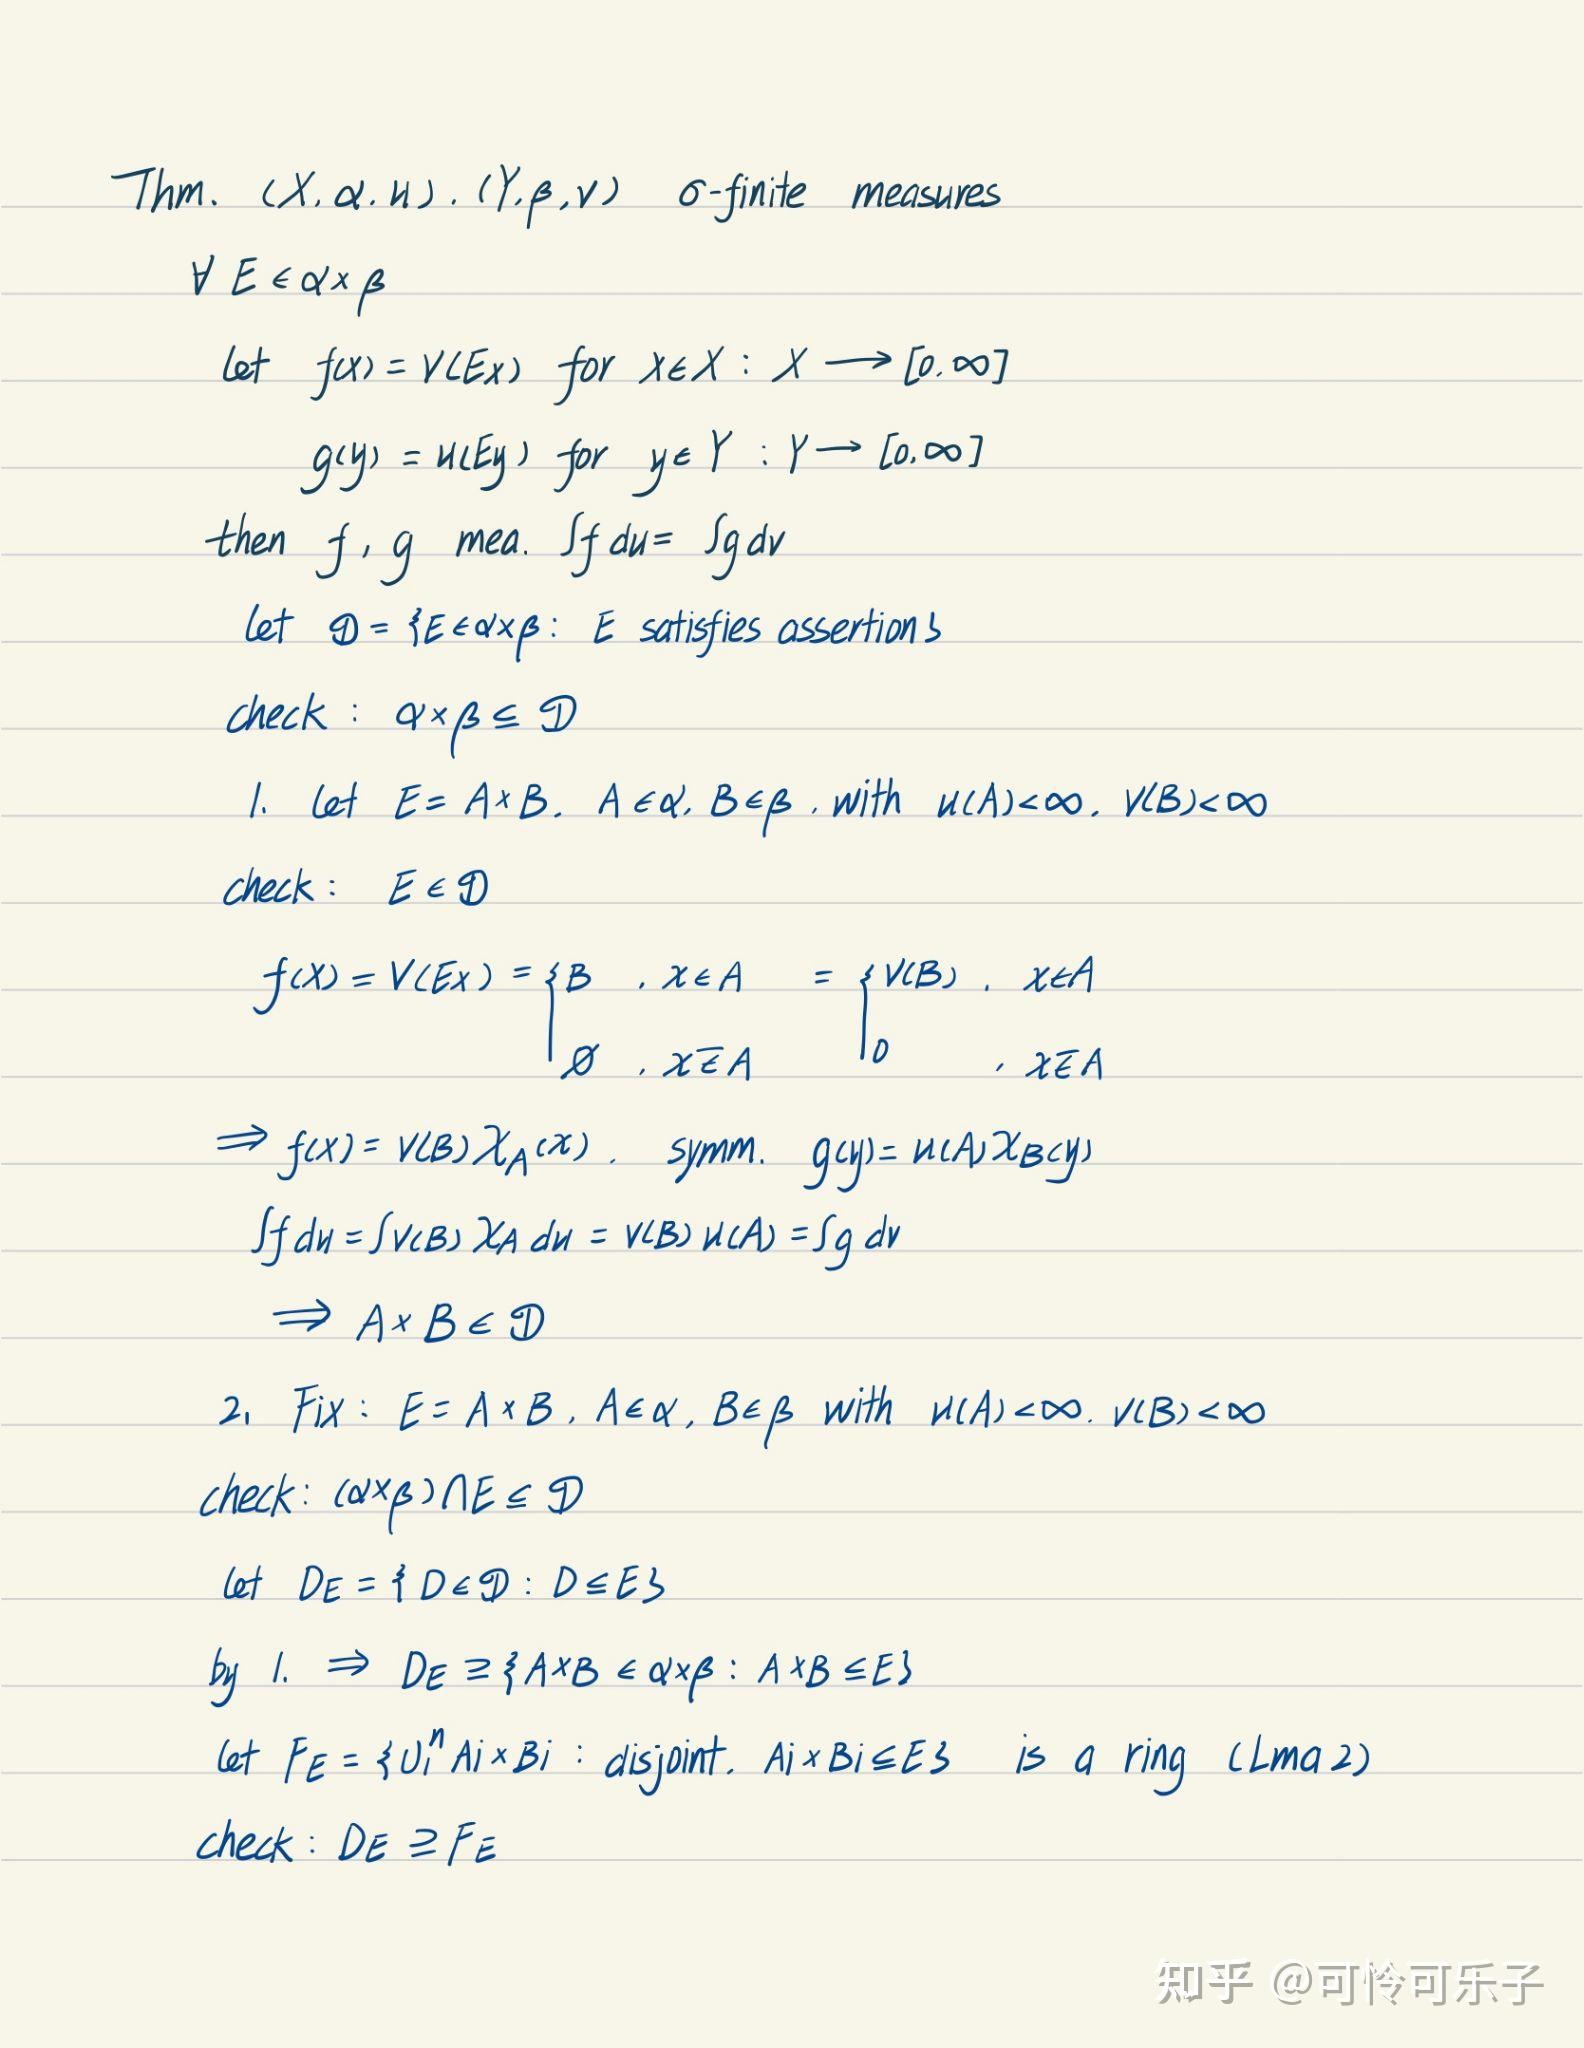 Thm. (X, α, u). (Y, β, v) σ-finite measures
∀ E ∈ α×β
Let f(x) = V(Ex) for x∈X : X ⟶ [0,∞]
g(y) = u(Ey) for y∈Y : Y ⟶ [0,∞]
then f, g mea. ∫f du = ∫g dv
Let 𝒟 = {E∈α×β : E satisfies assertion}
check : α×β ⊆ 𝒟
1. Let E = A×B. A∈α, B∈β, with u(A)<∞. V(B)<∞
check : E ∈ 𝒟
f(x) = V(Ex) = { B , x∈A = { V(B) , x∈A
∅ , x∈̅A 0 , x∈̅A
⇒ f(x) = V(B) χ_A(x). symm. g(y) = u(A) χ_B(y)
∫f du = ∫V(B) χ_A du = V(B) u(A) = ∫g dv
⇒ A×B ∈ 𝒟
2. Fix : E = A×B. A∈α, B∈β with u(A)<∞. V(B)<∞
check: (α×β)∩E ⊆ 𝒟
Let D_E = {D∈𝒟 : D⊆E}
by 1. ⇒ D_E ⊇ {A×B ∈ α×β : A×B ⊆ E}
Let F_E = {∪_i^n Ai×Bi : disjoint. Ai×Bi ⊆ E} is a ring (Lma 2)
check : D_E ⊇ F_E
知乎 @可怜可乐子